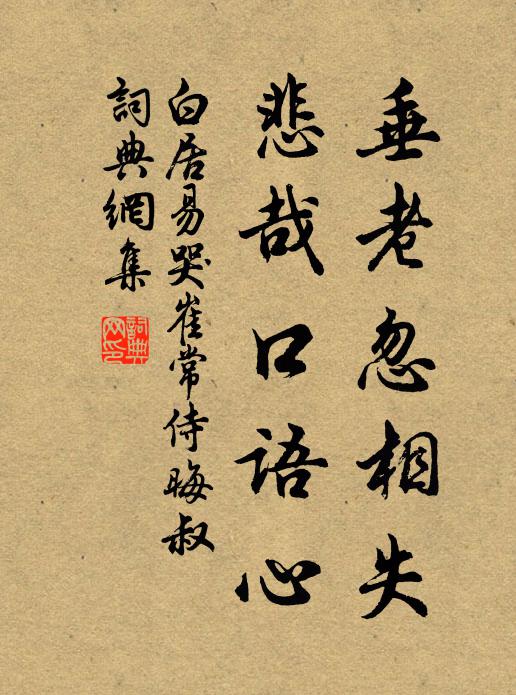 垂老忽相失
悲哉口語心
白居易哭崔常侍晦叔
詞典網集
詞典
网印